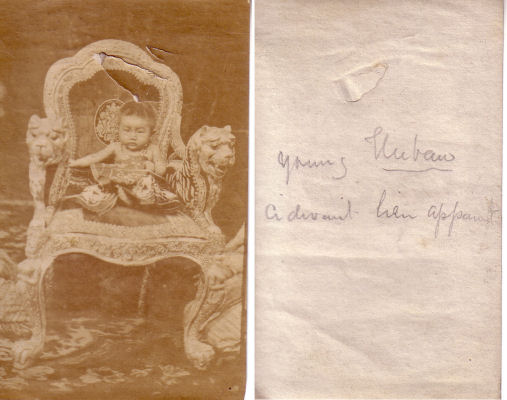 young
cidevant heir apparent